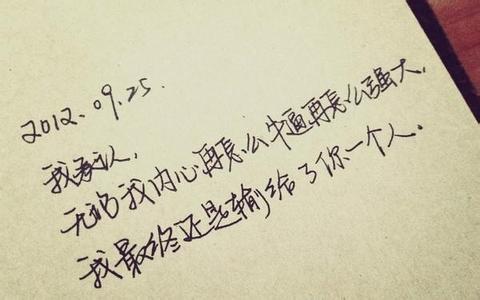 2012.09.25.
我承认，
无论我内心再怎么牛逼再怎么强大，
我最终还是输给了你一个人。